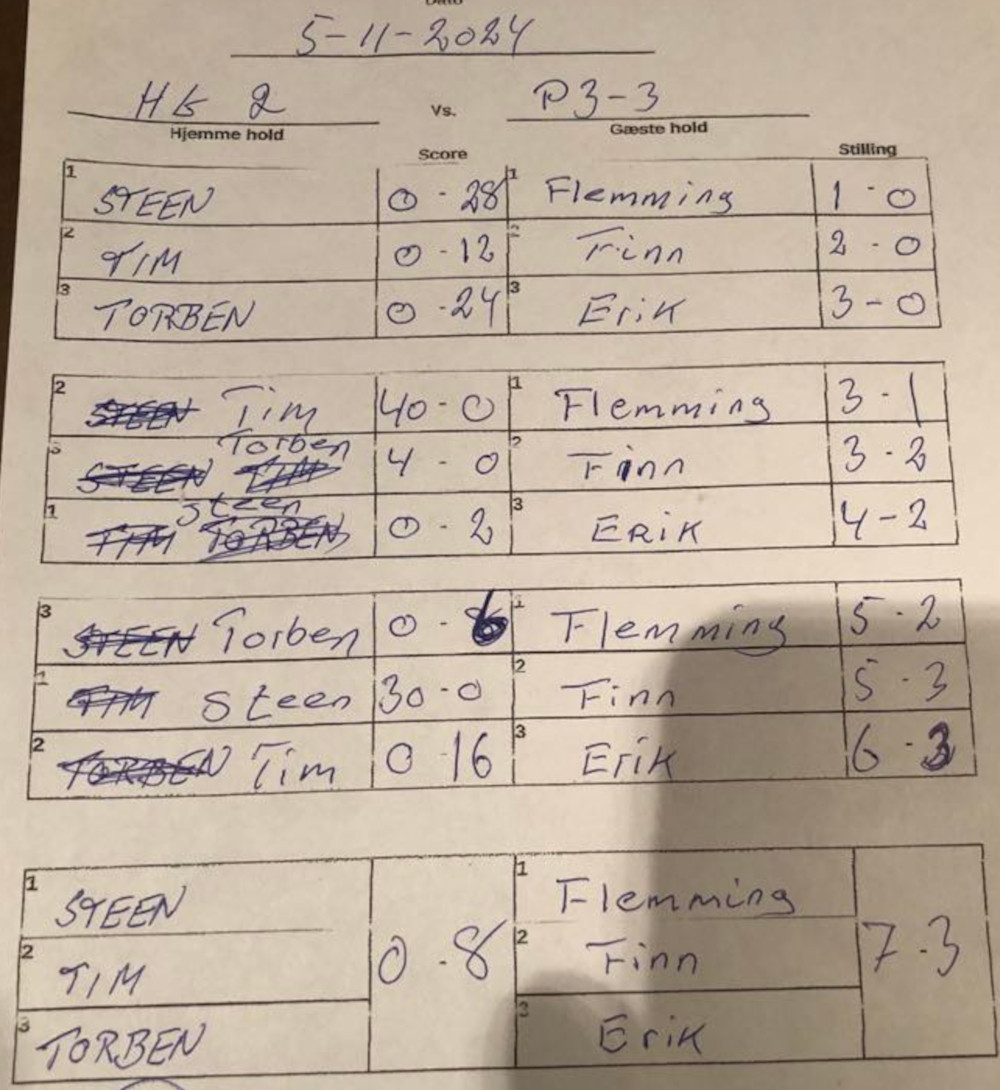 Dato
5-11-2024
HG 2 Vs. P3-3
Hjemme hold Gæste hold
Score Stilling
1 STEEN 0 - 28 1 Flemming 1 - 0
2 TIM 0 - 12 2 Finn 2 - 0
3 TORBEN 0 - 24 3 Erik 3 - 0
2 STEEN Tim 40 - 0 1 Flemming 3 - 1
3 STEEN TIM Torben 4 - 0 2 Finn 3 - 2
1 TIM TORBEN Steen 0 - 2 3 ERIK 4 - 2
3 STEEN Torben 0 - 6 1 Flemming 5 - 2
1 TIM Steen 30 - 0 2 Finn 5 - 3
2 TORBEN Tim 0 16 3 Erik 6 - 3
1 STEEN 1 Flemming
2 TIM 0 - 8 2 Finn 7 - 3
3 TORBEN 3 Erik